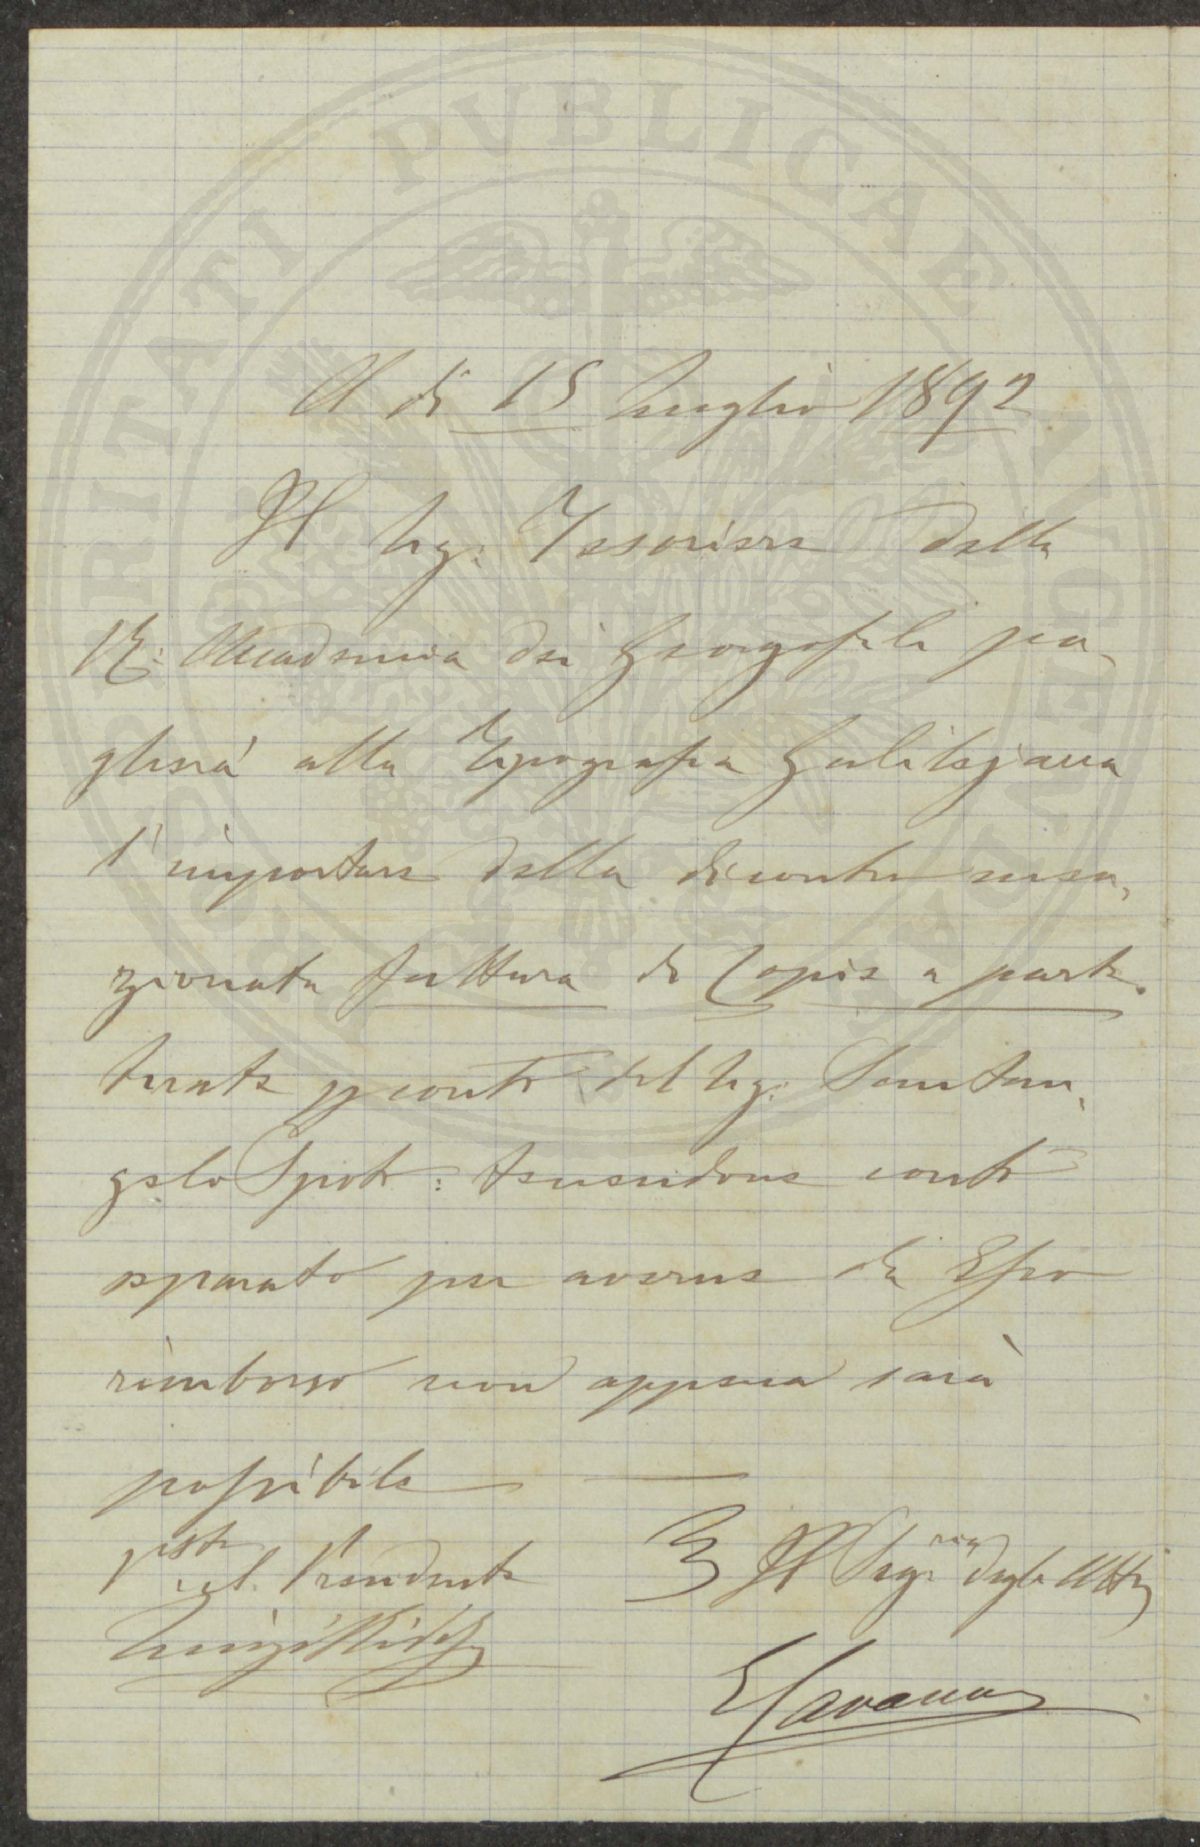 A dì 15 Luglio 1892
Il Sig: Tesoriere della
R: Accademia dei Georgofili pa-
gherà alla Tipografia Galilejana
l'importare della dicontro men-
zionata fattura di Copie a parte.
tirate p conto del Sig: Santan-
gelo Spoto: tenendone conto
separato per averne da Esso
rimborso non appena sarà
possibile —
Visto
il Presidente
Il Segrio degli Atti
PROSPERITATI PUBLICAE AUGENDAE